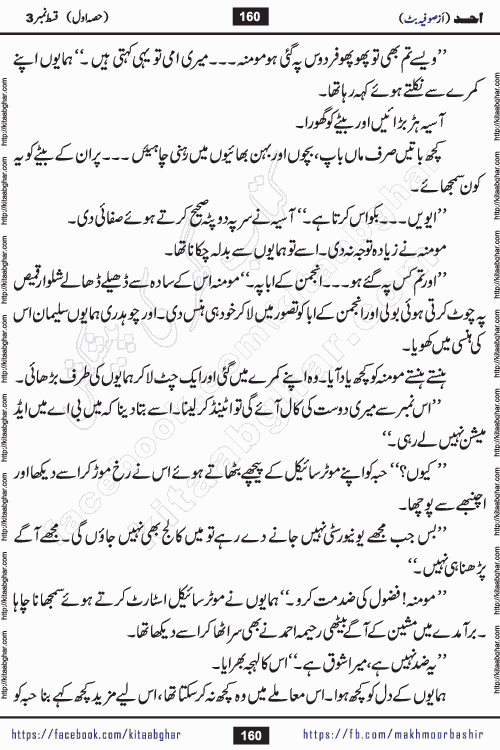 احمد (از صوفیہ بٹ) 160 (حصہ اول) قسط نمبر 3
’’ویسے تم بھی تو پھوپھو فردوس پہ گئی ہو مومنہ ۔۔۔ میری امی تو یہی کہتی ہیں ۔‘‘ ہمایوں اپنے
کمرے سے نکلتے ہوئے کہہ رہا تھا۔
آسیہ ہڑبڑائیں اور بیٹے کو گھورا۔
کچھ باتیں صرف ماں باپ، بچوں اور بہن بھائیوں میں رہنی چاہیئں ۔۔۔ پر ان کے بیٹے کو یہ
کون سمجھائے۔
’’ایویں ۔۔۔ بکواس کرتا ہے۔‘‘ آسیہ نے سر پہ دوپٹہ صحیح کرتے ہوئے صفائی دی۔
مومنہ نے زیادہ توجہ نہ دی۔ اسے تو ہمایوں سے بدلہ چکانا تھا۔
’’اور تم کس پہ گئے ہو ۔۔۔ انجمن کے ابا پہ۔‘‘ مومنہ اس کے سادہ سے ڈھیلے ڈھالے شلوار قمیص
پہ چوٹ کرتی ہوئی بولی اور انجمن کے ابا کو تصور میں لا کر خود ہی ہنس دی۔ اور چوہدری ہمایوں سلیمان اس
کی ہنسی میں کھویا۔
ہنستے ہنستے مومنہ کو کچھ یاد آیا۔ وہ اپنے کمرے میں گئی اور ایک چٹ لا کر ہمایوں کی طرف بڑھائی۔
’’اس نمبر سے میری دوست کی کال آئے گی تو اٹینڈ کر لینا۔ اسے بتا دینا کہ میں بی اے میں ایڈ
میشن نہیں لے رہی۔‘‘
’’کیوں؟‘‘ حبہ کو اپنے موٹر سائیکل کے پیچھے بٹھاتے ہوئے اس نے رخ موڑ کر اسے دیکھا اور
اچنبھے سے پوچھا۔
’’بس جب مجھے یونیورسٹی نہیں جانے دے رہے تو میں کالج بھی نہیں جاؤں گی۔ مجھے آگے
پڑھنا ہی نہیں۔‘‘
’’مومنہ! فضول کی ضد مت کرو۔‘‘ ہمایوں نے موٹر سائیکل اسٹارٹ کرتے ہوئے سمجھانا چاہا
۔ برآمدے میں مشین کے آگے بیٹھی رحیمہ احمد نے بھی سر اٹھا کر اسے دیکھا تھا۔
’’یہ ضد نہیں ہے، میرا شوق ہے۔‘‘ اس کا لہجہ بھرایا۔
ہمایوں کے دل کو کچھ ہوا۔ اس معاملے میں وہ کچھ نہ کر سکتا تھا، اس لیے مزید کچھ کہے بنا حبہ کو
https://facebook.com/kitaabghar 160 https://fb.com/makhmoorbashir
http://kitaabghar.com